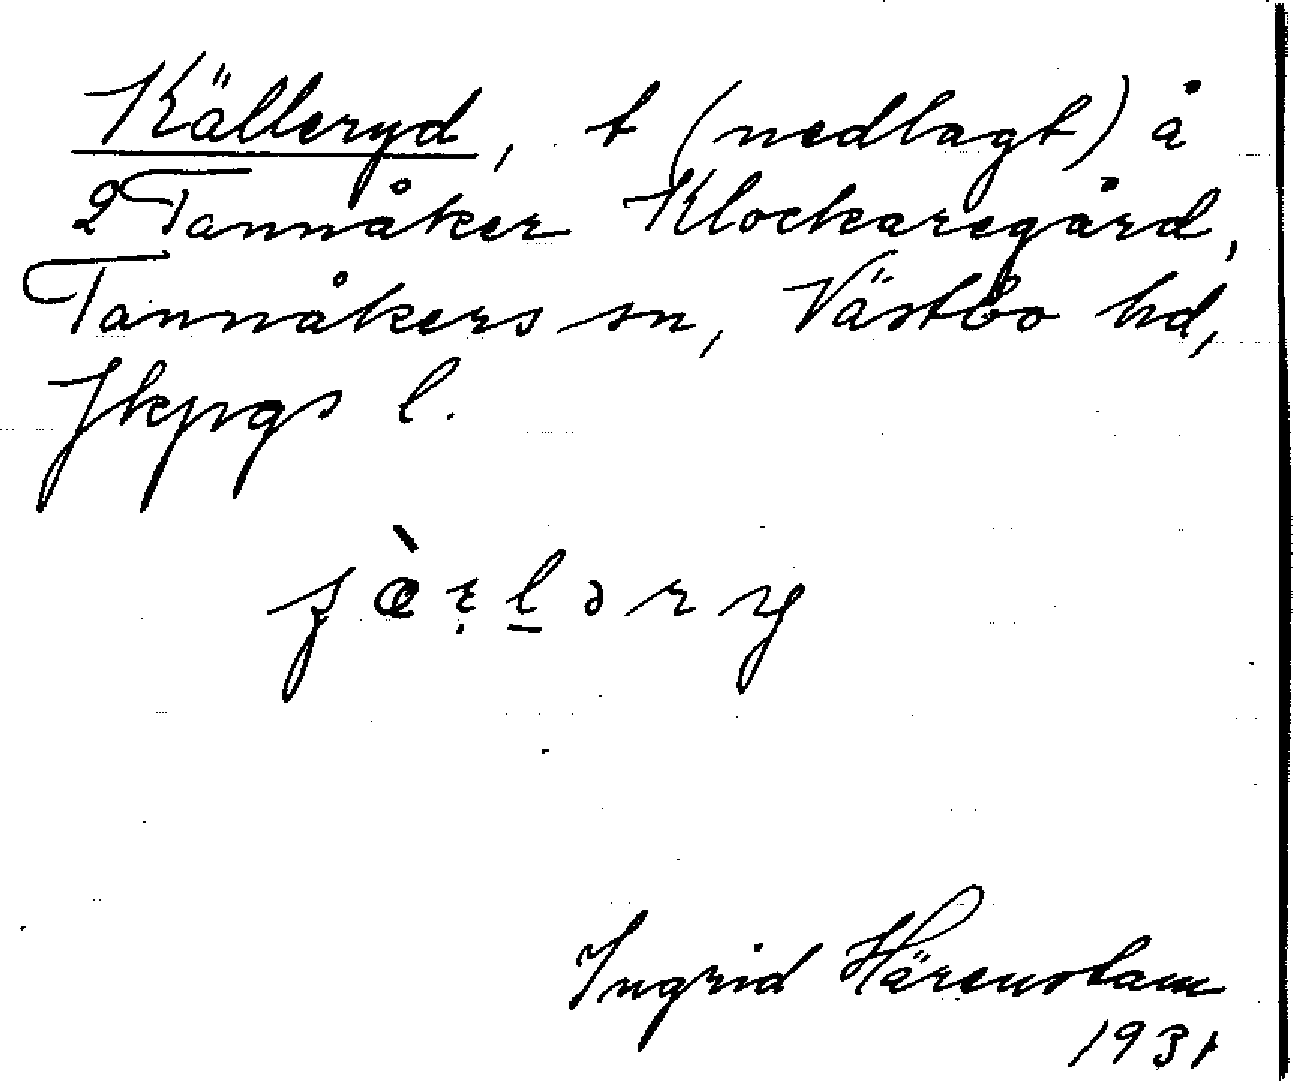 Källeryd, t (nedlagt) å
2 Tannåker Klockaregård,
Tannåkers sn, Västbo hd,
Jkpgs l.
Ingrid Härenstam
1931